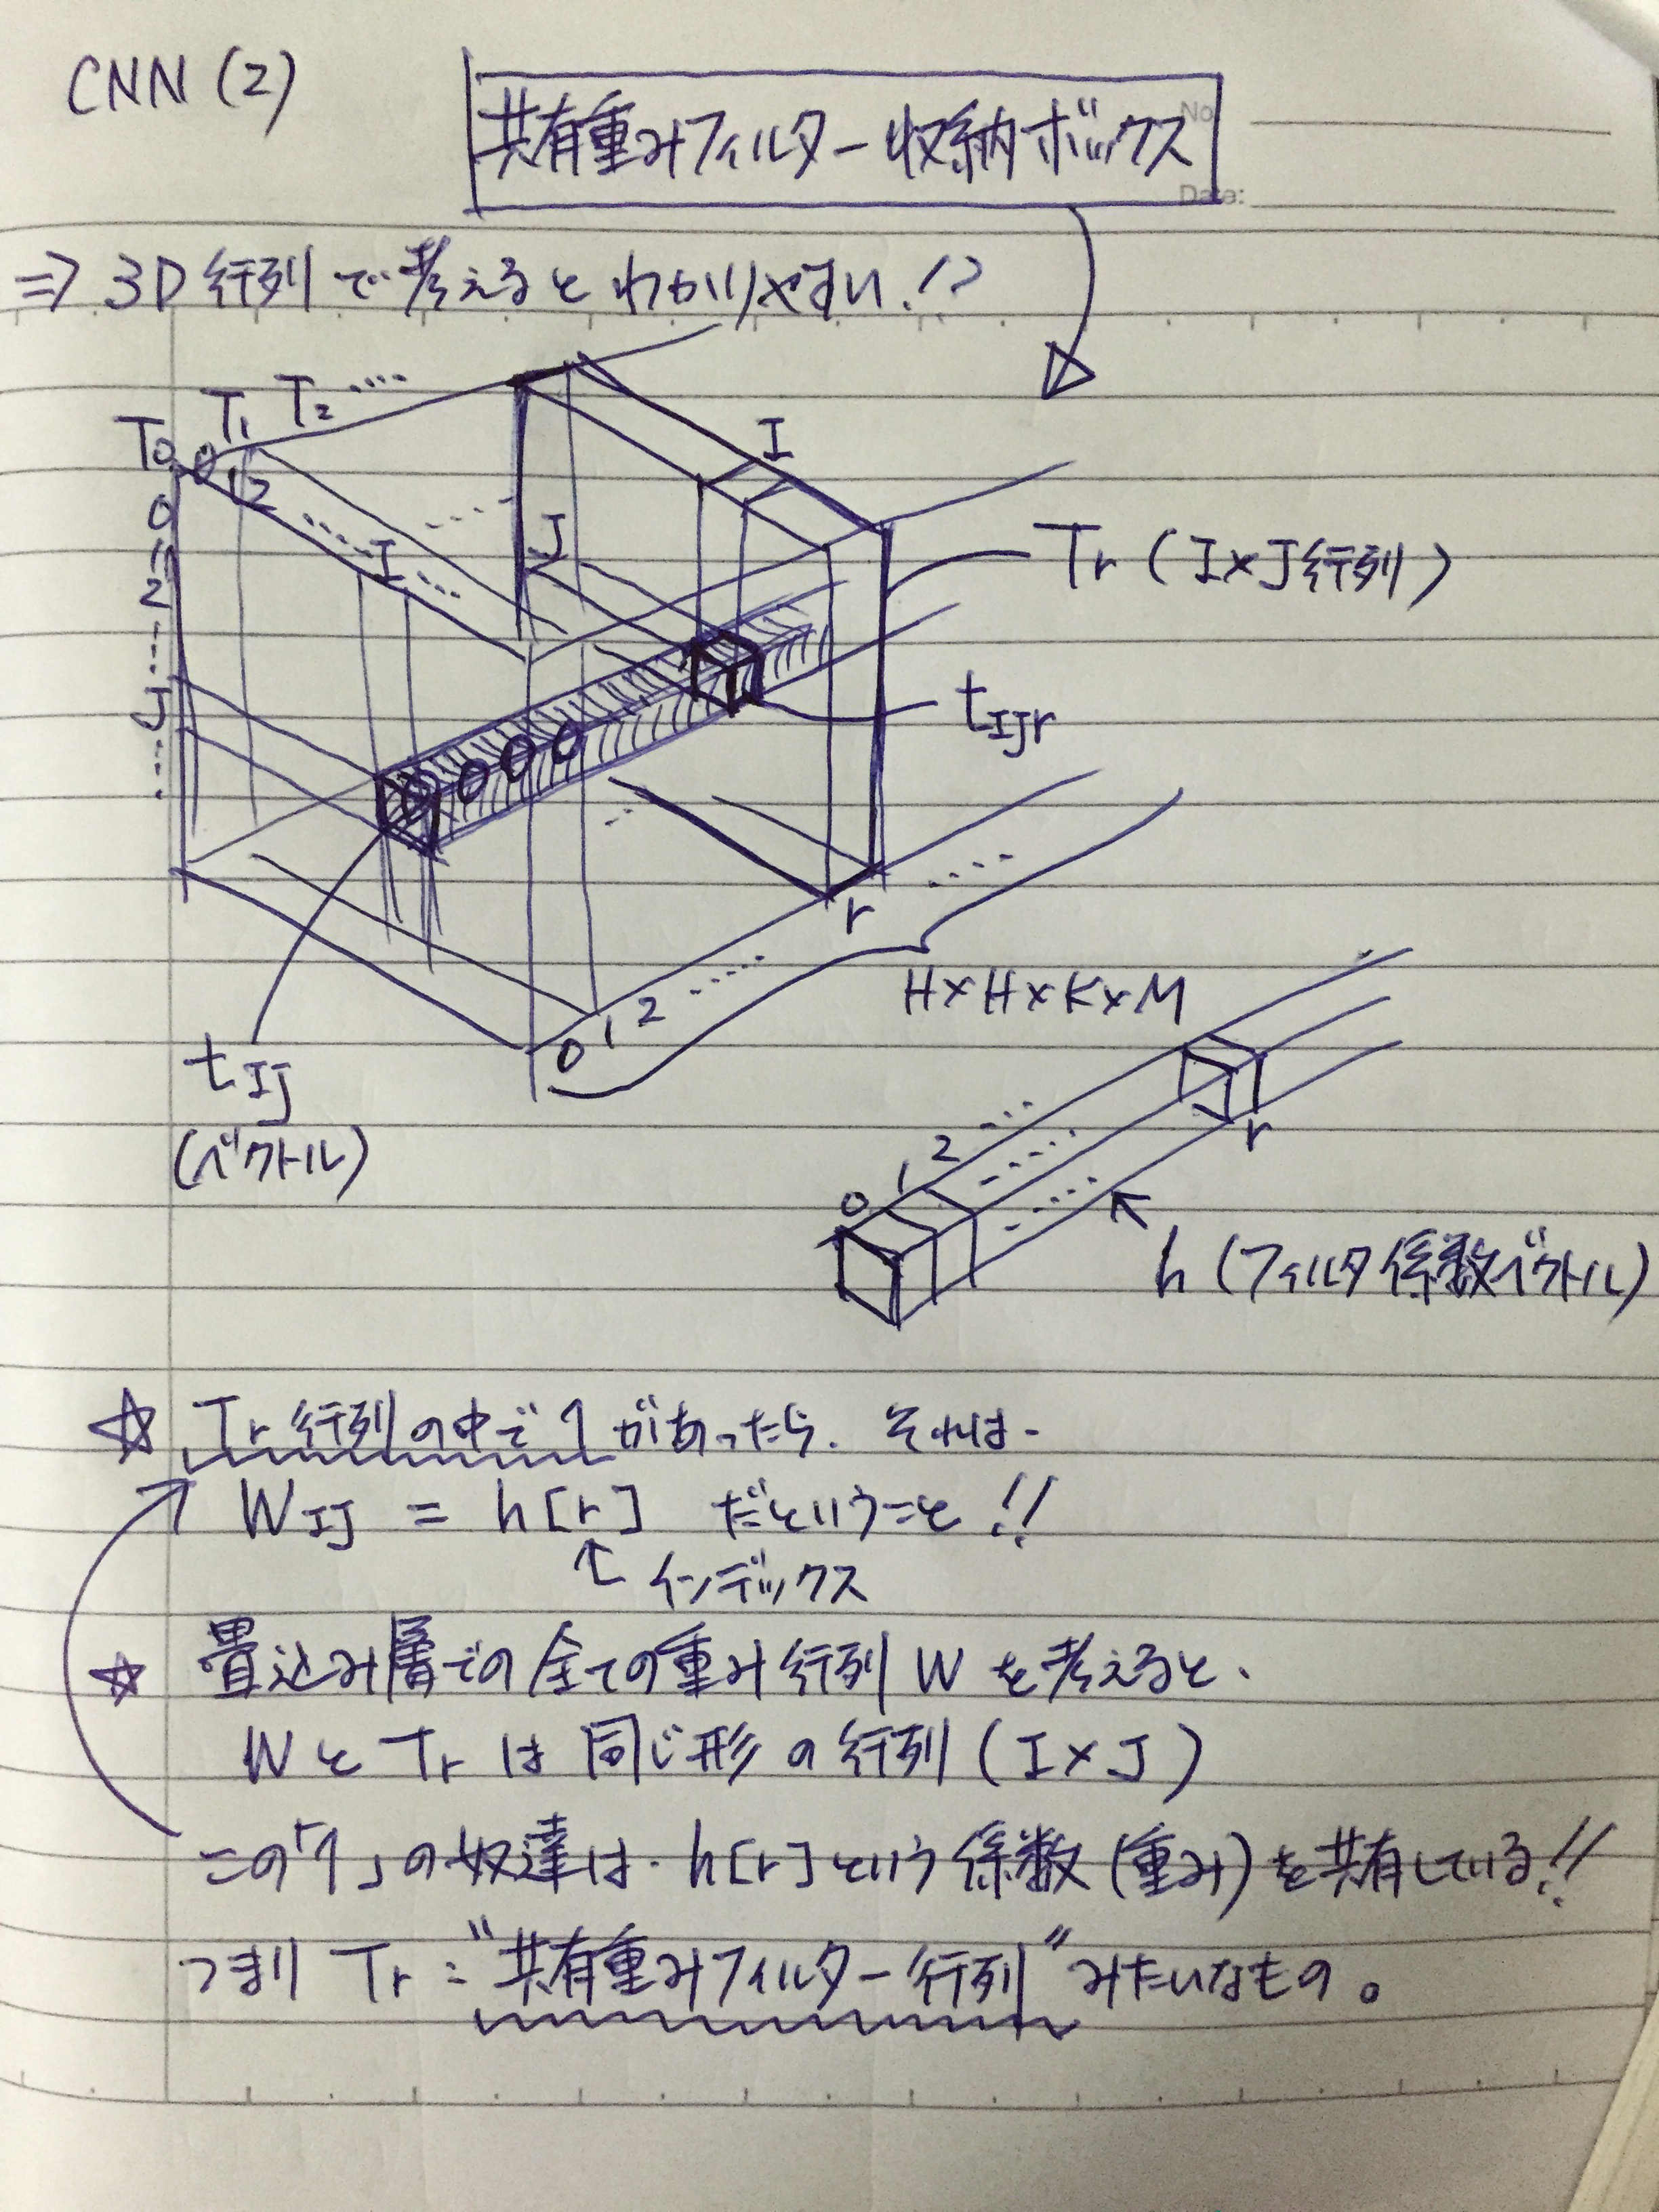 CNN (2)
共有重みフィルター収納ボックス
No.
Date:
⇒ 3D行列で考えるとわかりやすい!?
T0 T1 T2 ....
0 1 2 ..... I ...
0
1
2
...
J
...
J
I
Tr (I×J行列)
tIJr
r
0 1 2 .....
H×H×K×M
tIJ
(ベクトル)
0 1 2 ....
r
h (フィルタ係数ベクトル)
☆ Tr 行列の中で 1 があったら、それは、
WIJ = h[r] だということ!!
↑ インデックス
☆ 畳込み層での全ての重み行列 W を考えると、
W と Tr は 同じ形の行列 (I×J)
この「1」の奴達は、h[r] という係数(重み)を共有している!!
つまり Tr : “共有重みフィルター行列” みたいなもの。